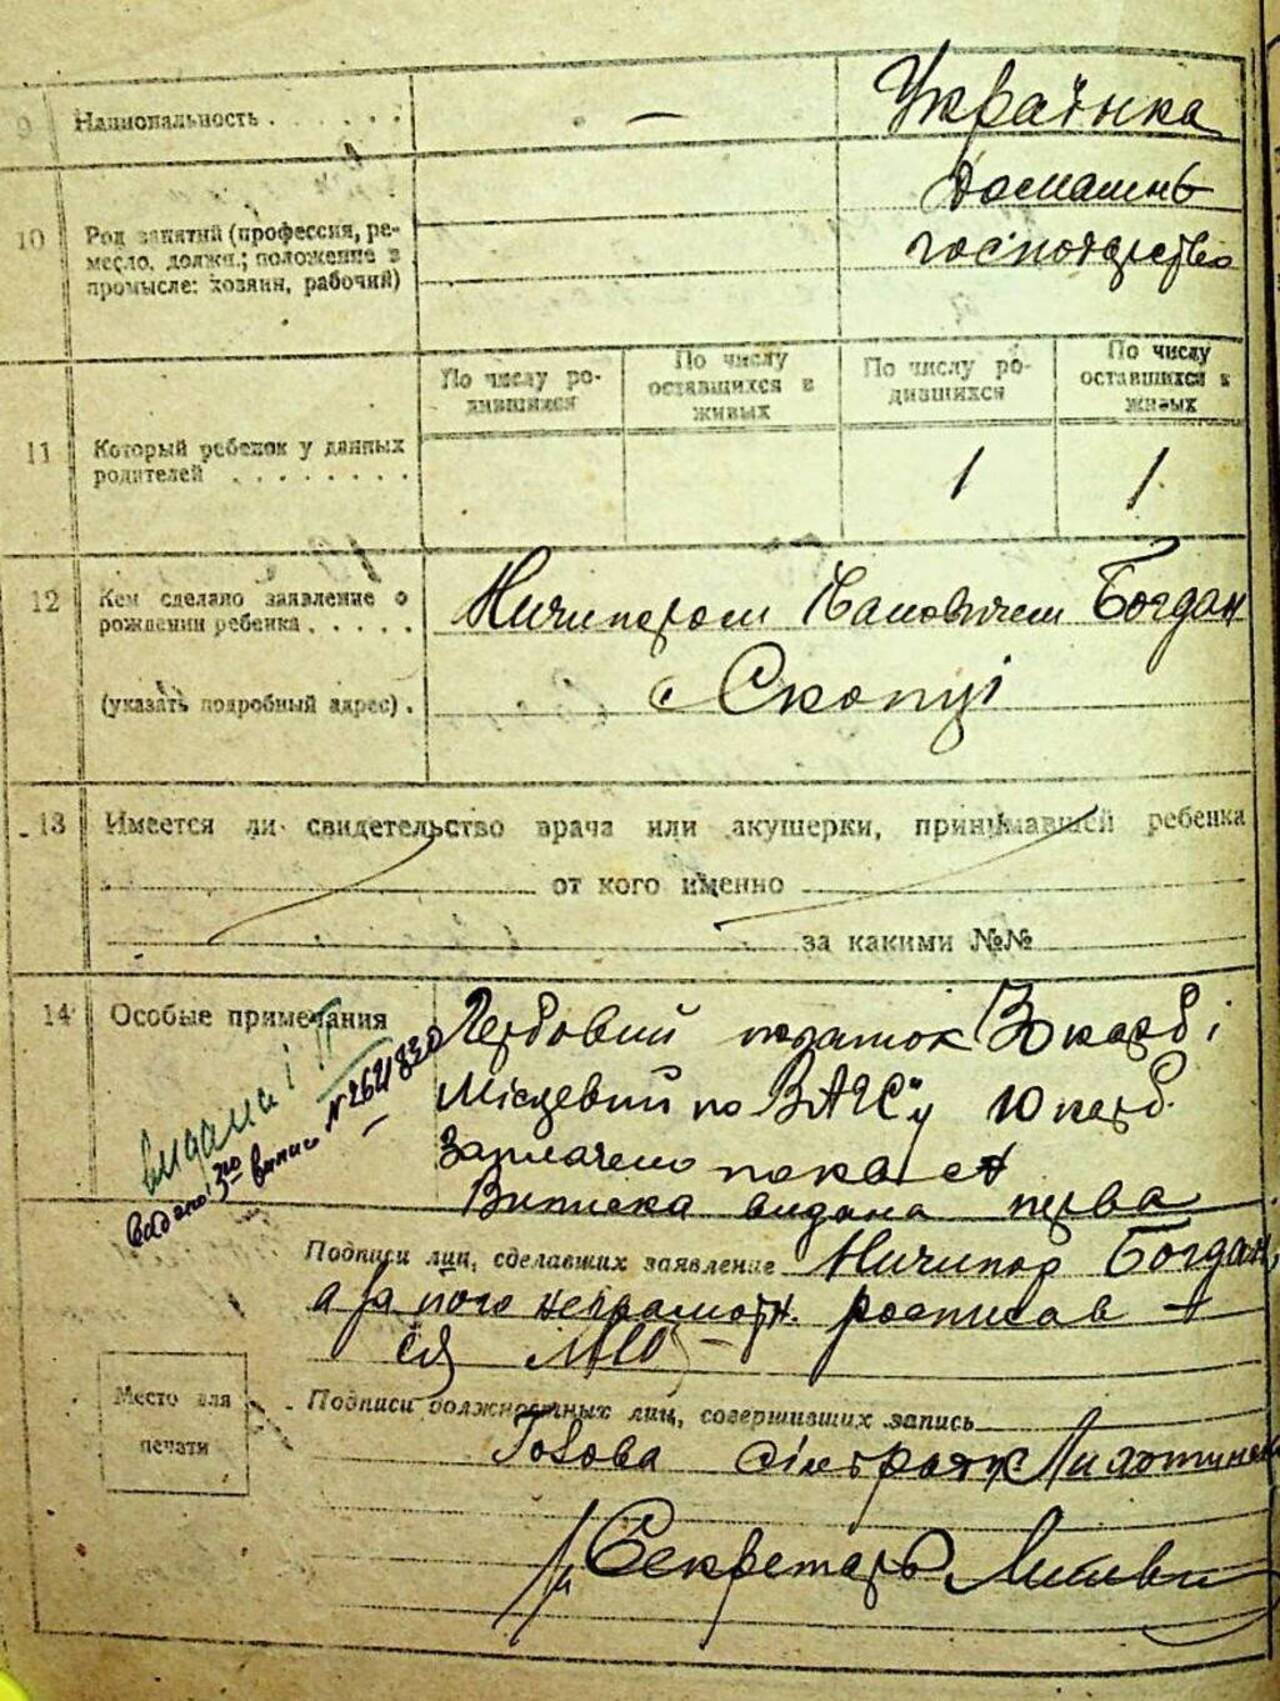 9 Национальность . . . . . . — Українка
10 Род занятий (профессия, ре-
месло, должн.; положение в
промысле: хозяин, рабочий)
домашнє
господарство
11 Который ребенок у данных
родителей . . . . . . . .
По числу ро-
дившихся
По числу
оставшихся в
живых
По числу ро-
дившихся
По числу
оставшихся в
живых
1 1
12 Кем сделано заявление о
рождении ребенка . . . . .
(указать подробный адрес) .
Ничипором Івановичем Богдан
с Скопці
13 Имеется ли свидетельство врача или акушерки, принимавшей ребенка
от кого именно
за какими №№
14 Особые примечания
видана і
видано 3тю випис № 2621830
Гербовий податок 30 карб і
Місцевий по ВАГСу 10 карб.
Заплачено
Виписка видана перва
Подписи лиц, сделавших заявление Ничипор Богдан,
а за його неграмотн. росписав
ся
Место для
печати
Подписи должностных лиц, совершивших запись
Голова сільради
Секретарь